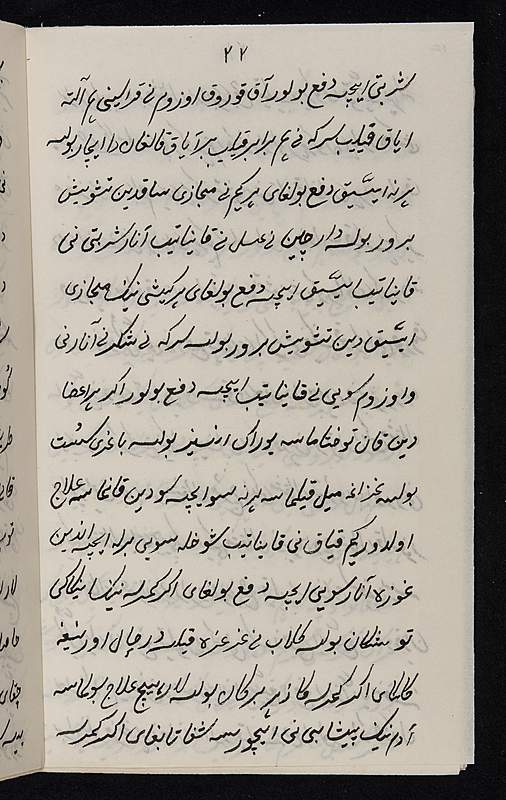 ۲۲
شربتی ایچسه دفع بولور آق قوروق اوزوم نی قراسینی هم آلته
ایاق قیلیب سرکه نی هم برابر قیلیب بر آیاق قالغان دا ایچار بولسه
هرنه ایسّیق دفع بولغای هر کیم نی مجازی ساقدین تشویش
برور بولسه دارچین نی عسل نی قایناتیب آنار شربتی نی
قایناتیب ایسّیق ایچسه دفع بولغای هر کیشی نینک مجازی
ایسّیق دین تشویش برور بولسه سرکه نی شکر نی آنارنی
و اوزوم سویی نی قایناتیب ایچسه دفع بولور اکر هر اعضا
دین قان توختاماسه یوراک ایسیز بولسه باغری سست
بولسه غذاغه میل قیلماسه هرنه سو ایچسه سودین قانماسه علاج
اولدورکیم قیاق نی قایناتیب شوخله سویی برله ایچسه اندین
غوره آنار سویی ایچسه دفع بولغای اکر کمرسه نینک اینکاکی
توشکان بولسه کلاب نی غرغره قیلسه درحال اورنیغه
کلکای اکر کمرسه کا زهر برکان بولسه لار هیچ علاج بولماسه
آدم نینک پیشابی نی ایچورسه شفا تابغای اکر کمرسه